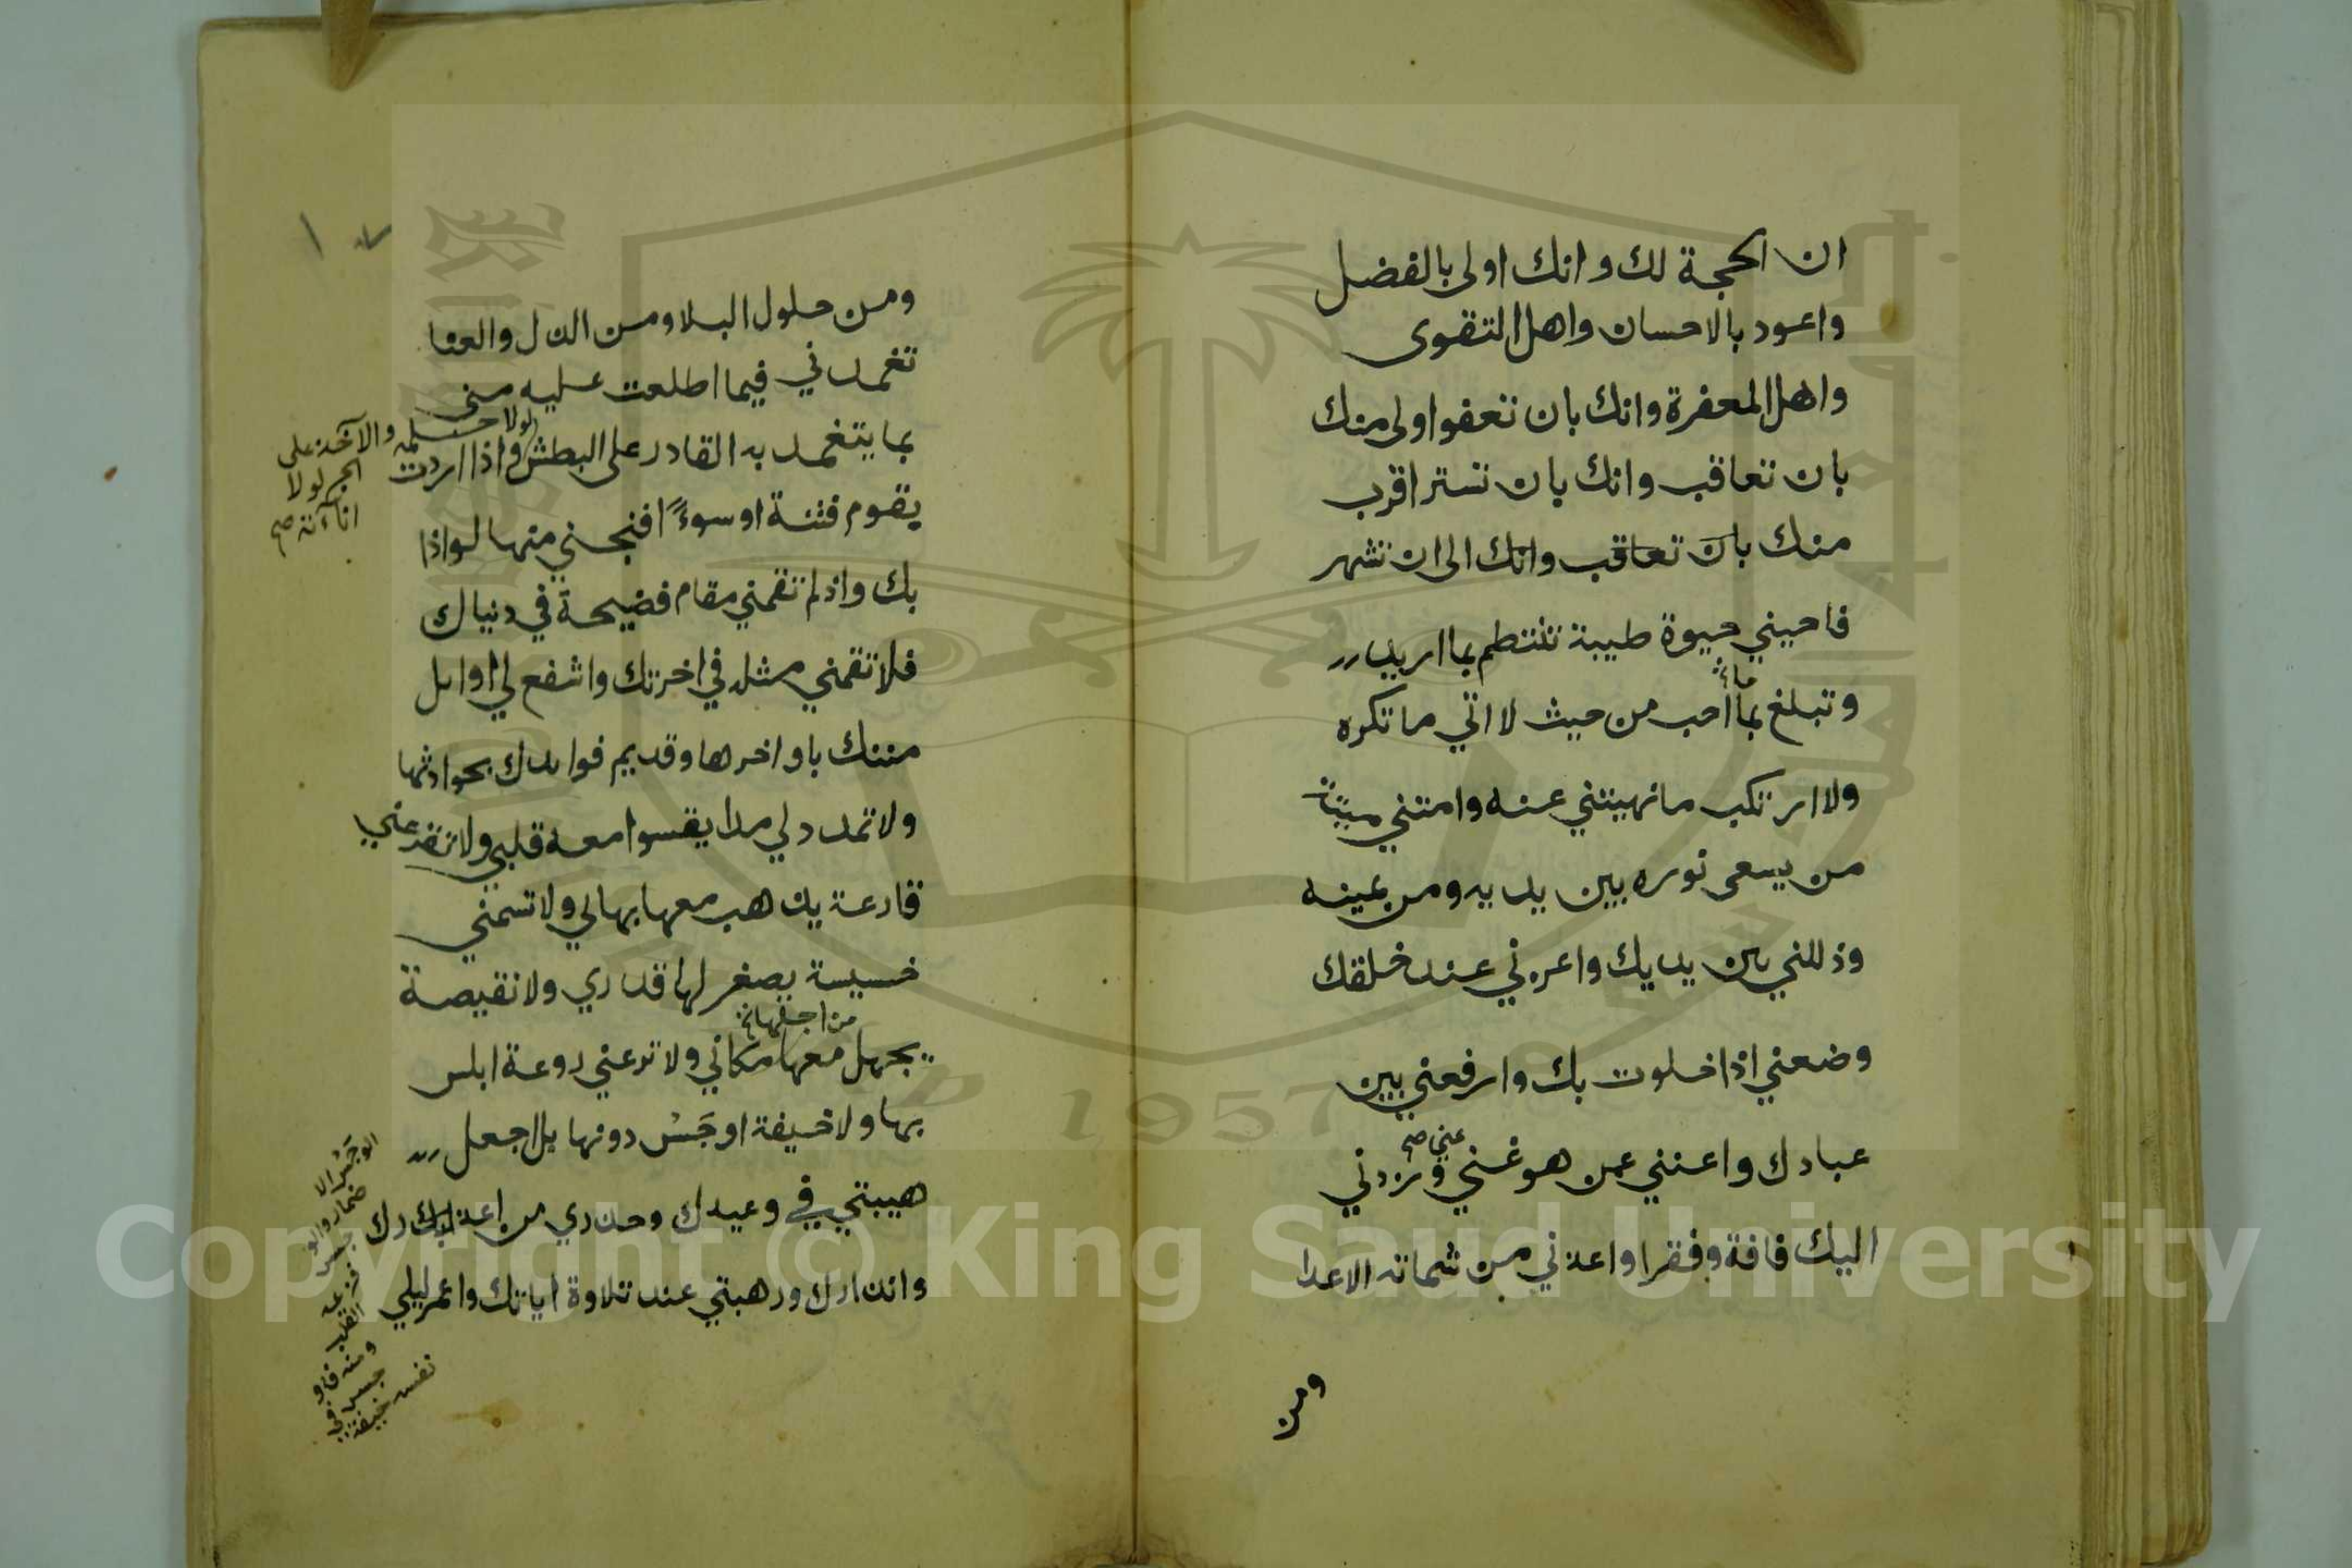 ان الحجة لك وانك اولى بالفضل
واعود بالاحسان واهل التقوى
واهل المغفرة وانك بان تعفوا اولى منك
بان تعاقب وانك بان تستر اقرب
منك بان تعاقب وانك الى ان تشهر
فاحيني حيوة طيبة تنتظم بما اريد
وتبلغ بما احب من حيث لا اتي ما تكره
ولا ارتكب ما نهيتني عنه وامتني ميتة
من يسعى نوره بين يديه ومن يمينه
وذللني بين يديك واعزني عند خلقك
وضعني اذا خلوت بك وارفعني بين
عبادك واغنني عمن هو غني وزدني
عني صح
اليك فاقة وفقرا واعذني من شماتة الاعدا
ومن
ومن حلول البلا ومن الذل والعنا
تغمدني فيما اطلعت عليه مني
بما يتغمد به القادر على البطش واذا اردت
لولا حلمه والآخذ على
الجر لولا
اناته صح
يقوم فتنة او سوءً افنجني منها لواذا
بك واذ لم تقمني مقام فضيحة في دنياك
فلا تقمني مثله في اخرتك واشفع لي اوايل
مننك باواخرها وقديم فوايدك بحوادثها
ولا تمدد لي مدا يقسوا معه قلبي ولا تقرعني
قارعة يذهب معها بهالي ولا تسمني
خسيسة يصغر لها قدري ولا نقيصة
من اجلها
يجهل معها مكاني ولا ترعني روعة ابلس
بها ولا خيفة اوجَسْ دونها بل اجعل
هيبتي في وعيدك وحذري من اعذارك
وانذارك ورهبتي عند تلاوة اياتك واعمر ليلي
الوَجَسُ الا
ضمار والو
جس
فزعه
القلب
ومنه فاو
جس في
نفسه خيفة
Copyright © King Saud University
1957